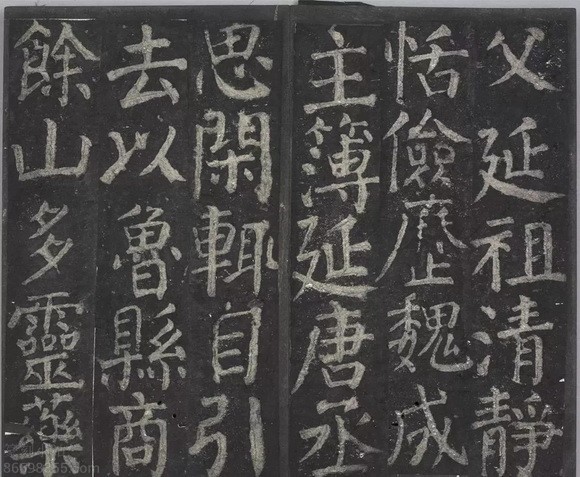 父延祖清靜
恬儉歷魏成
主簿延唐丞
思閑輒自引
去以魯縣商
餘山多靈藥